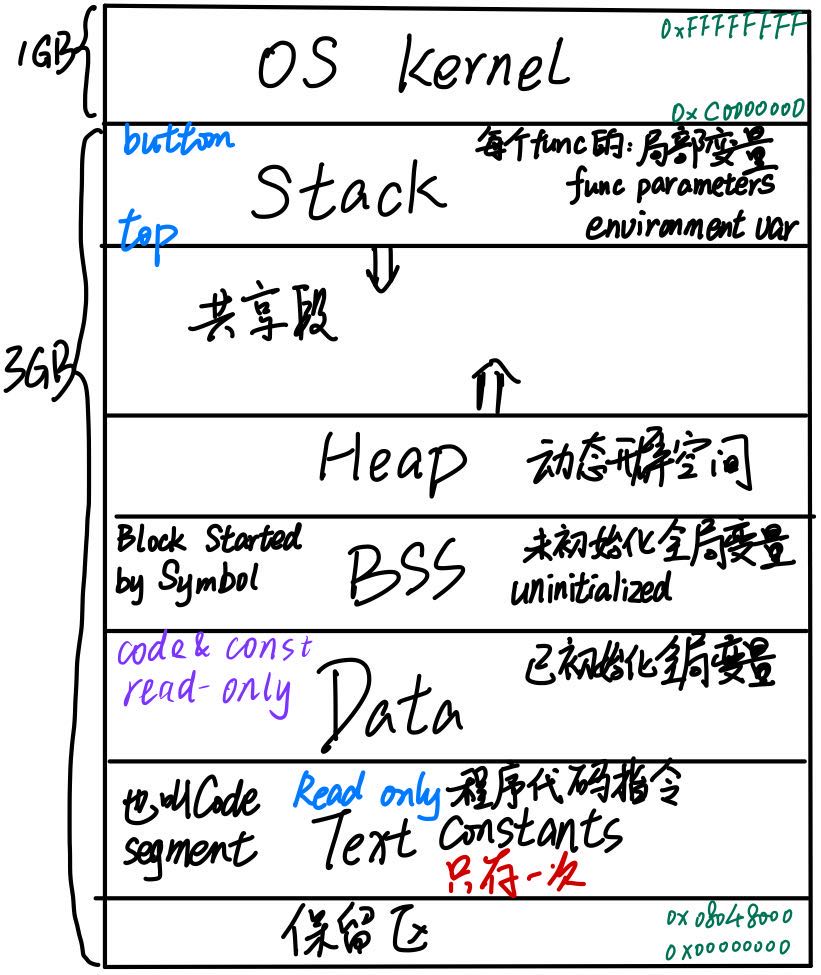 1GB
OS kernel
0xFFFFFFFF
0xC0000000
3GB
button
Stack
top
每个func的:局部变量
func parameters
environment var
共享段
Heap
动态开辟空间
Block Started
by Symbol
BSS
未初始化全局变量
uninitialized
code & const
read-only
Data
已初始化全局变量
也叫Code
segment
Read only
Text
程序代码指令
Constants
只存一次
保留区
0x08048000
0x00000000